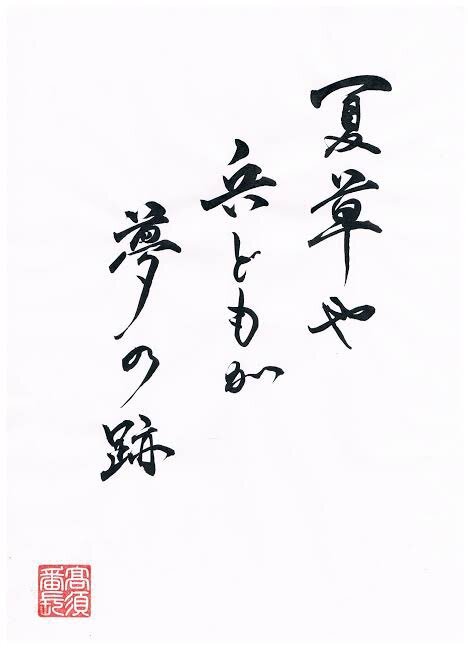 夏草や
兵どもが
夢の跡
高須
番長